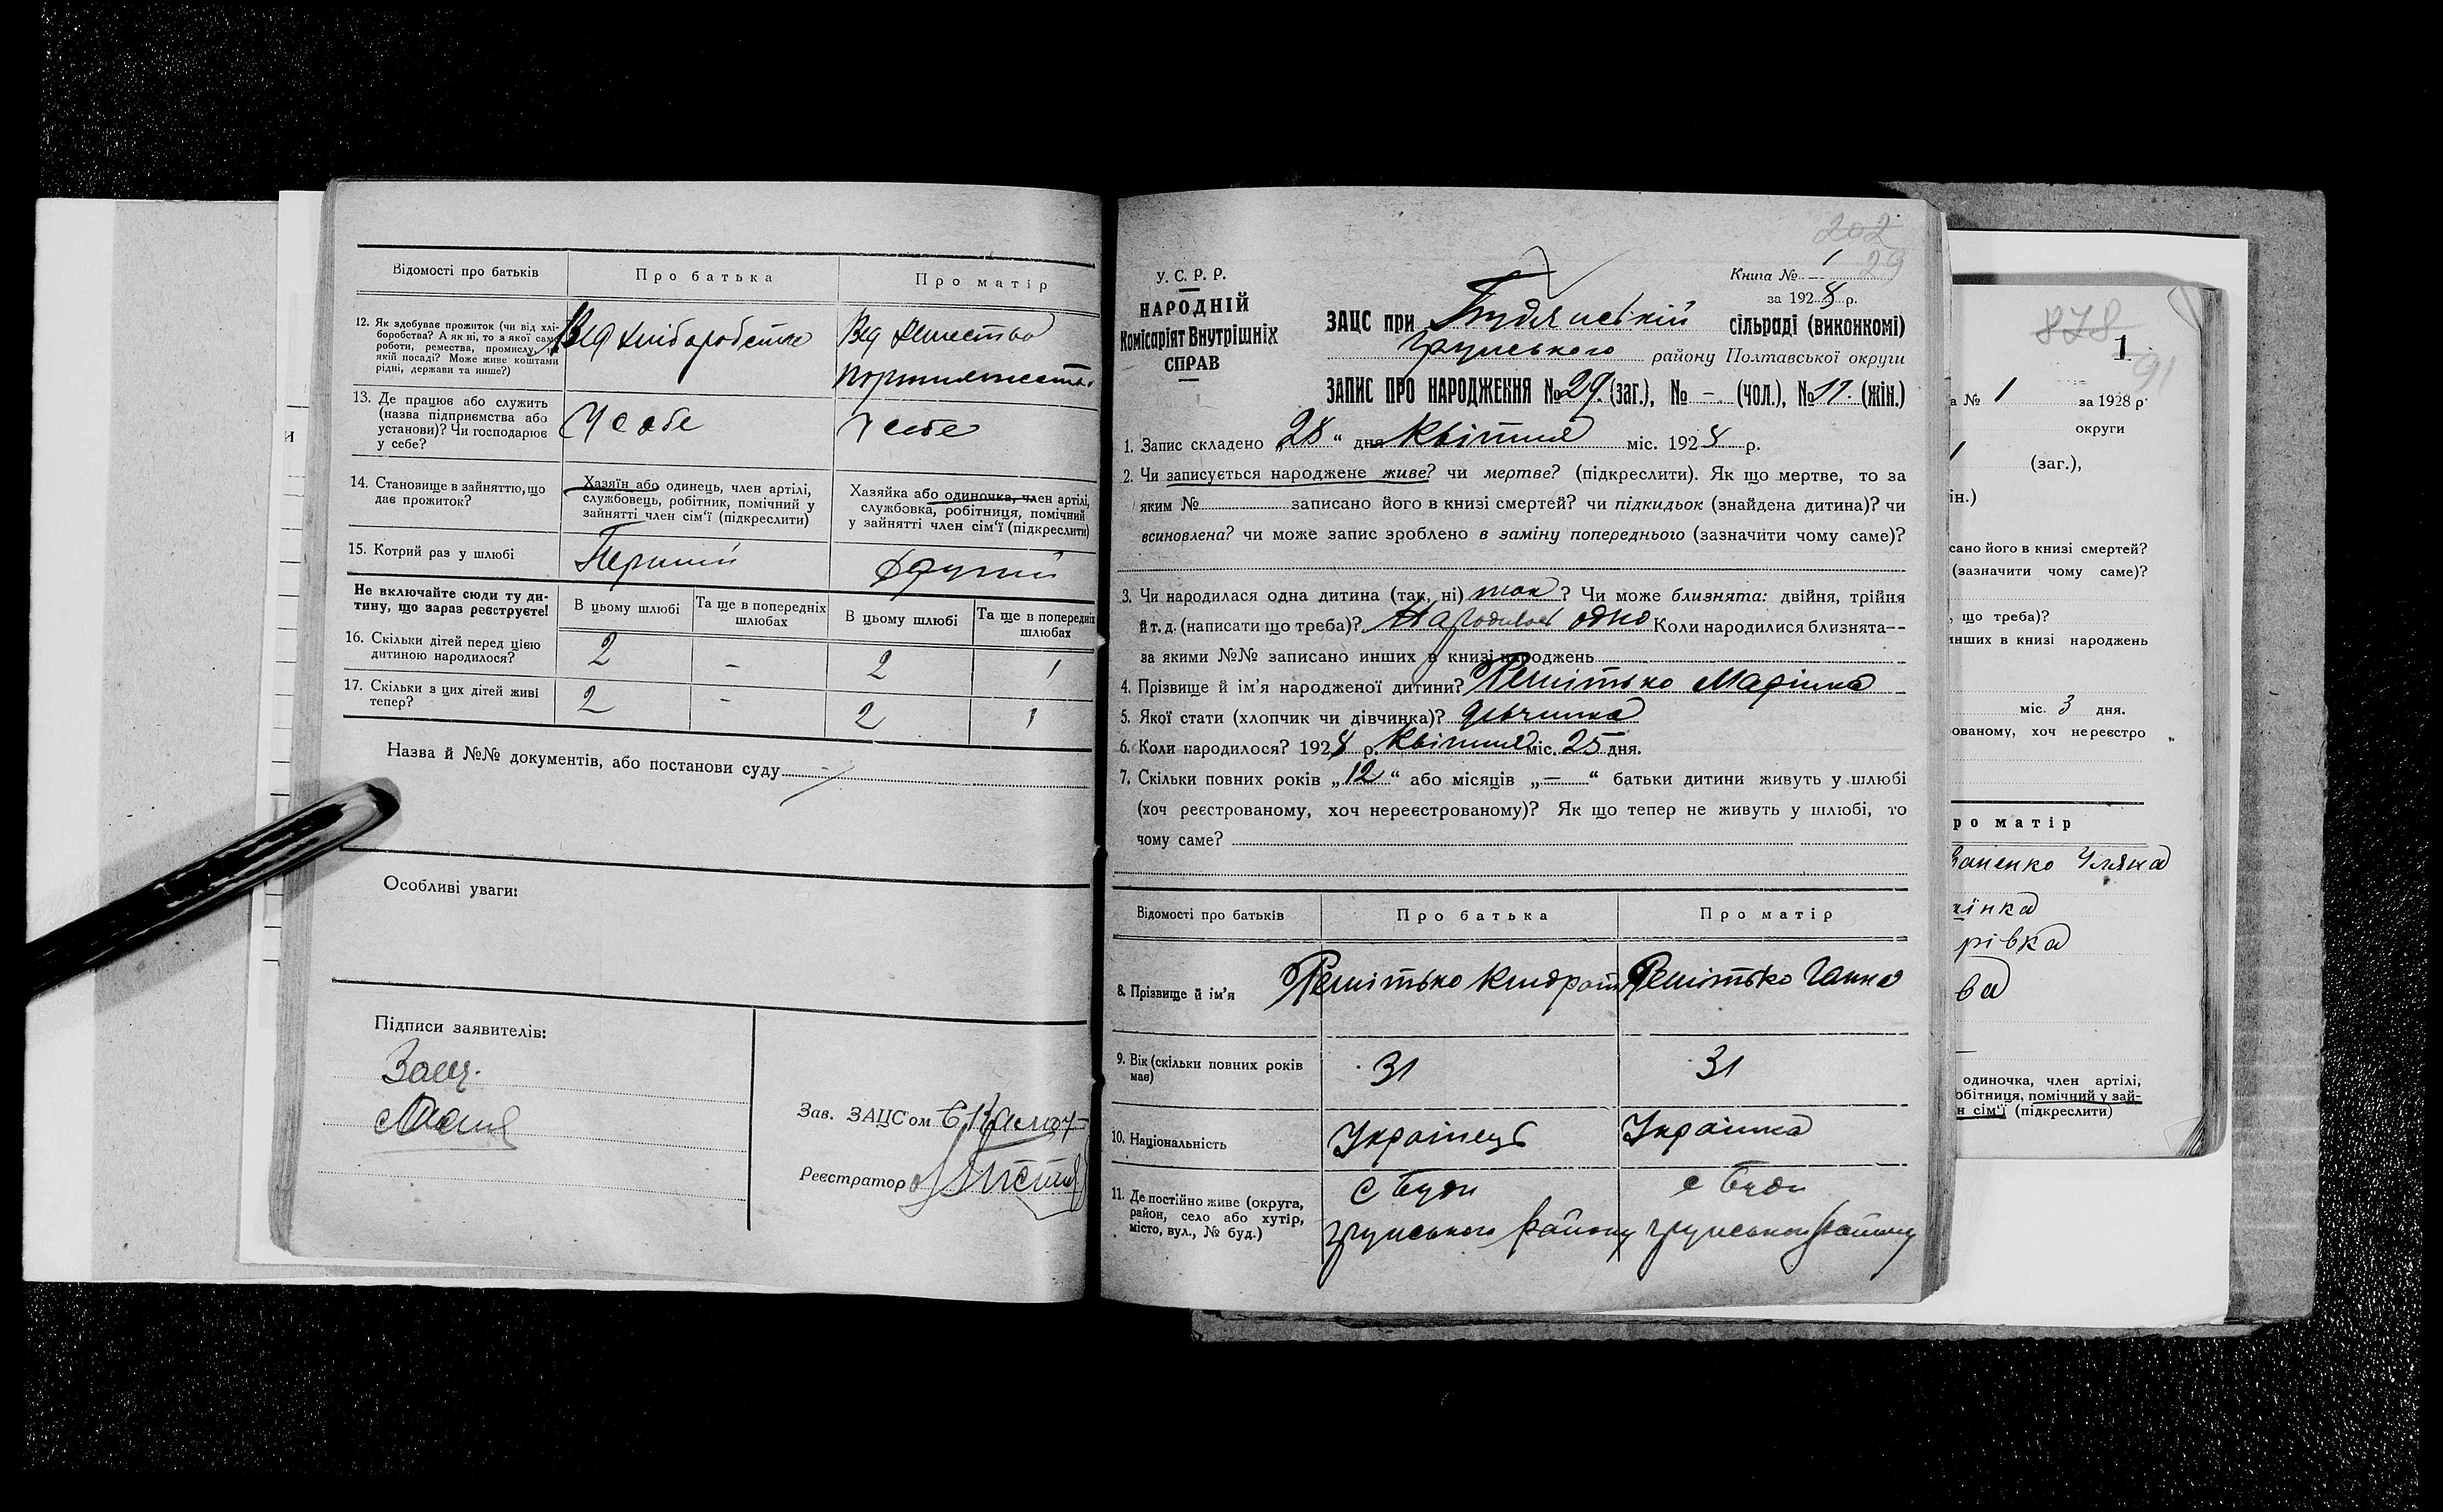 Відомості про батьків
Про батька
Про матір
12. Як здобуває прожиток (чи від хлі-
боробства? А як ні, то з якої саме
роботи, ремества, промислу, на
якій посаді? Може живе коштами
рідні, держави та инше?)
Від хліборобства
Від
13. Де працює або служить
(назва підприємства або
установи)? Чи господарює
у себе?
У себе
У себе
14. Становище в зайняттю, що
дає прожиток?
Хазяїн або одинець, член артілі,
службовець, робітник, помічний у
зайнятті член сім'ї (підкреслити)
Хазяйка або одиночка, член артілі,
службовка, робітниця, помічний
у зайнятті член сім'ї (підкреслити)
15. Котрий раз у шлюбі
Перший
Другий
Не включайте сюди ту ди-
тину, що зараз реєструєте!
В цьому шлюбі
Та ще в попередніх
шлюбах
В цьому шлюбі
Та ще в попередніх
шлюбах
16. Скільки дітей перед цією
дитиною народилося?
2
-
2
1
17. Скільки з цих дітей живі
тепер?
2
-
2
1
Назва й №№ документів, або постанови суду
Особливі уваги:
Підписи заявителів:
Зав. ЗАЦС'ом
Реєстратор
202
29
У. С. Р. Р.
НАРОДНІЙ
Комісаріят Внутрішніх
СПРАВ
Книга № 1
за 1928 р.
ЗАЦС при Будянській сільраді (виконкомі)
Грунського району Полтавської округи
ЗАПИС ПРО НАРОДЖЕННЯ № 29. (заг.), № -. (чол.), № 11. (жін.)
1. Запис складено „28" дня Квітня міс. 1928 р.
2. Чи записується народжене живе? чи мертве? (підкреслити). Як що мертве, то за
яким № записано його в книзі смертей? чи підкидьок (знайдена дитина)? чи
всиновлена? чи може запис зроблено в заміну попереднього (зазначити чому саме)?
3. Чи народилася одна дитина (так, ні) так? Чи може близнята: двійня, трійня
й т. д. (написати що треба)? Народилось одно Коли народилися близнята--
за якими №№ записано инших в книзі народжень
4. Прізвище й ім'я народженої дитини? Решітько Марінка
5. Якої стати (хлопчик чи дівчинка)? дівчинка
6. Коли народилося? 1928 р. Квітня міс. 25 дня.
7. Скільки повних років „12" або місяців „—" батьки дитини живуть у шлюбі
(хоч реєстрованому, хоч нереєстрованому)? Як що тепер не живуть у шлюбі, то
чому саме?
Відомості про батьків
Про батька
Про матір
8. Прізвище й ім'я
Решітько Кндрат
Решітько Ганна
9. Вік (скільки повних років
має)
31
31
10. Національність
Українець
Українка
11. Де постійно живе (округа,
район, село або хутір,
місто, вул., № буд.)
с Буди
Грунського району
с Буди
Грунського району
878
1
91
а № 1 за 1928 р.
округи
(заг.),
ін.)
сано його в книзі смертей?
(зазначити чому саме)?
, що треба)?
инших в книзі народжень
міс. 3 дня.
ованому, хоч нереєстро
ро матір
Уляна
їнка
рівка
ва
одиночка, член артілі,
обітниця, помічний у зай-
н сім'ї (підкреслити)